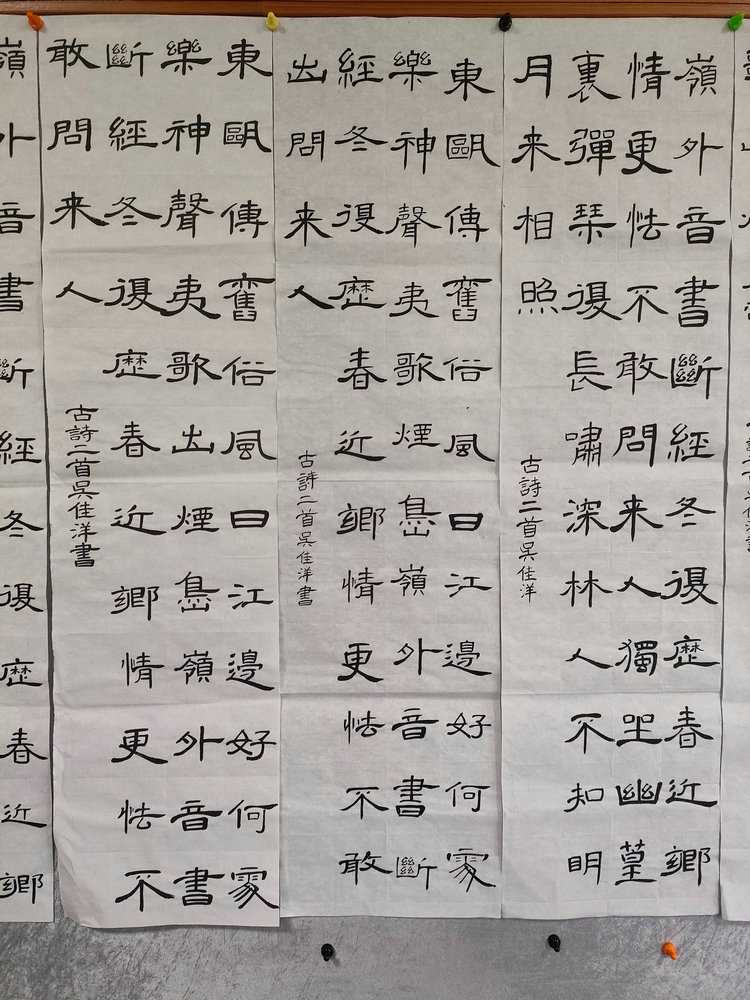 嶺外音書斷經冬復歷春近鄉
情更怯不敢問来人獨坐幽篁
裏彈琴復長嘯深林人不知明
月来相照
古詩二首吳佳洋
東甌傳舊俗風日江邊好何處
樂神聲夷歌煙島嶺外音書斷
經冬復歷春近鄉情更怯不敢
出問来人
古詩二首吳佳洋書
東甌傳舊俗風日江邊好何處
樂神聲夷歌出煙島嶺外音書
斷經冬復歷春近鄉情更怯不
敢問来人
古詩二首吳佳洋書
嶺外音書斷經冬復歷春近鄉